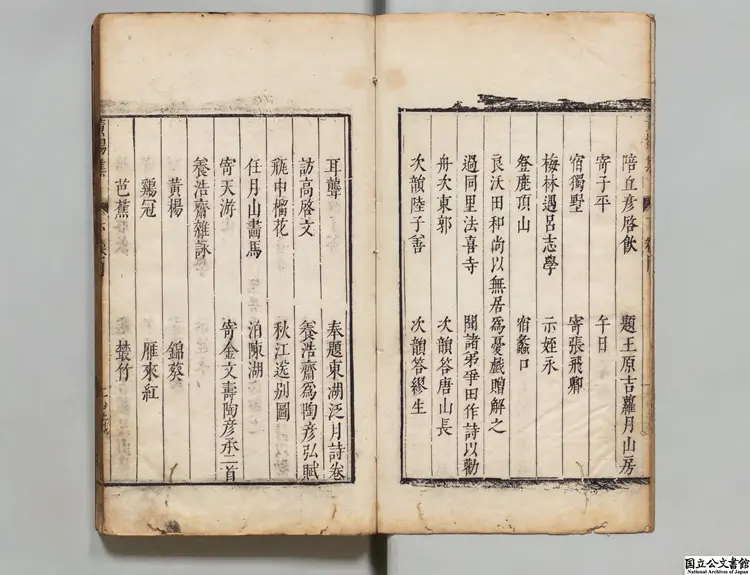 陪丘彥啓飲 題王原吉蘿月山房
寄子平 午日
宿獨墅 寄張飛卿
梅林遇呂志學 示姪永
登鹿頂山 宿蠡口
良沃田和尚以無居爲憂戲贈解之
過同里法喜寺 聞諸弟爭田作詩以勸
舟次東郭 次韻答唐山長
次韻陸子善 次韻答繆生
耳聾 奉題東湖泛月詩卷
訪高啓文 養浩齋爲陶彥弘賦
瓶中榴花 秋江送別圖
任月山畫馬 泊陳湖
寄天游 寄金文壽陶彥承二首
養浩齋雜詠
黃楊 錦葵
鷄冠 雁來紅
芭蕉 叢竹
国立公文書館
National Archives of Japan